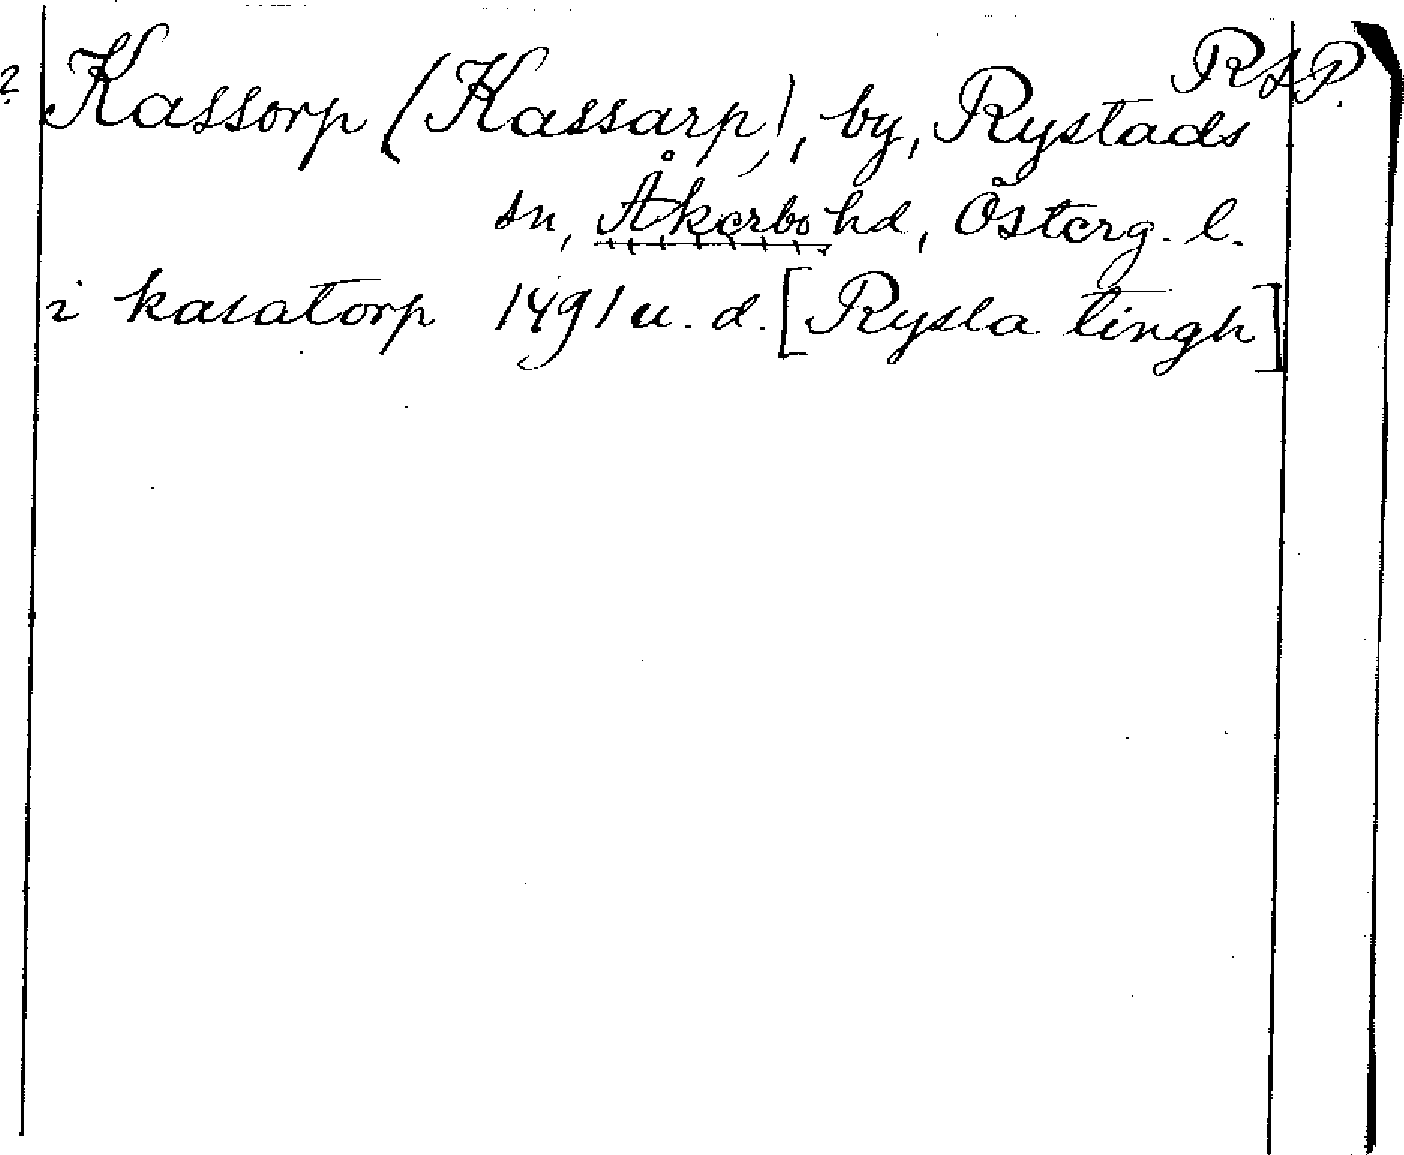 RSP.
? Kassorp (Kassarp), by, Rystads
sn, Åkerbo hd, Österg. l.
i kasatorp 1491 u. d. [Rysla tingh]